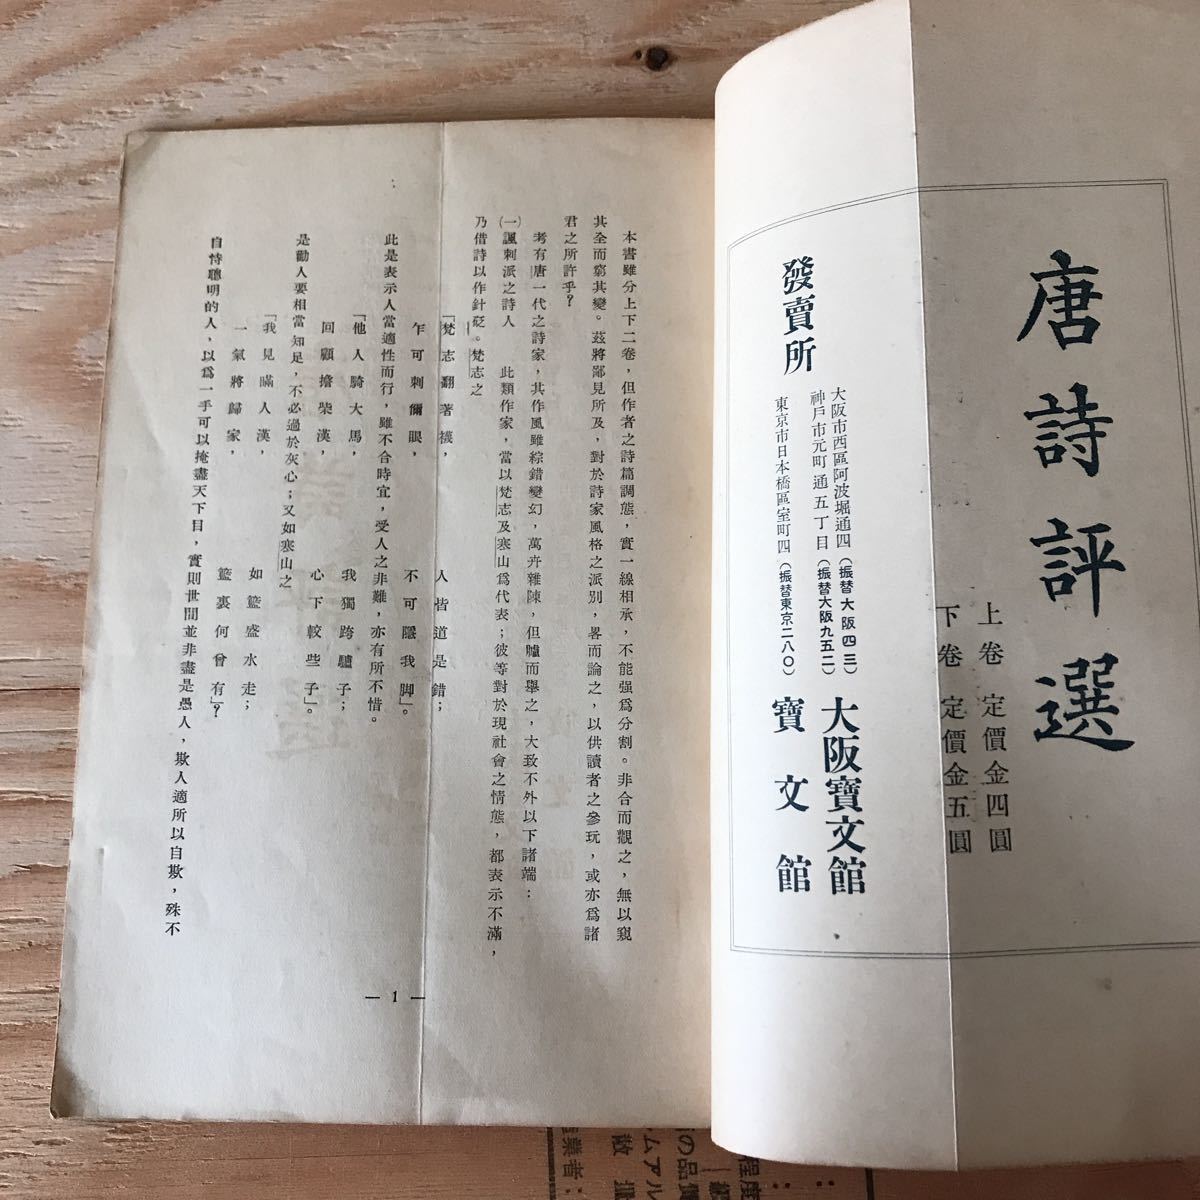 唐詩評選
上卷 定價金四圓
下卷 定價金五圓
發賣所
大阪市西區阿波堀通四(振替大阪四三)
大阪寶文館
神戶市元町通五丁目(振替大阪九五二)
東京市日本橋區室町四(振替東京二八〇)
寶文館
本書雖分上下二卷，但作者之詩篇調態，實一線相承，不能强爲分割。非合而觀之，無以窺
其全而窮其變。茲將鄙見所及，對於詩家風格之派別，畧而論之，以供讀者之參玩，或亦爲諸
君之所許乎？
考有唐一代之詩家，其作風雖綜錯變幻，萬卉雜陳，但臚而舉之，大致不外以下諸端：
(一)諷刺派之詩人　此類作家，當以梵志及寒山爲代表；彼等對於現社會之情態，都表示不滿，
乃借詩以作針砭。梵志之
「梵志翻著襪，　人皆道是錯；
乍可刺爾眼，　不可隱我脚」。
此是表示人當適性而行，雖不合時宜，受人之非難，亦有所不惜。
「他人騎大馬，　我獨跨驢子；
回顧擔柴漢，　心下較些子」。
是勸人要相當知足，不必過於灰心；又如寒山之
「我見瞞人漢，　如籃盛水走；
一氣將歸家，　籃裏何曾有」？
自恃聰明的人，以爲一手可以掩盡天下目，實則世間並非盡是愚人，欺人適所以自欺，殊不
— 1 —
程度
ムアル
業者：